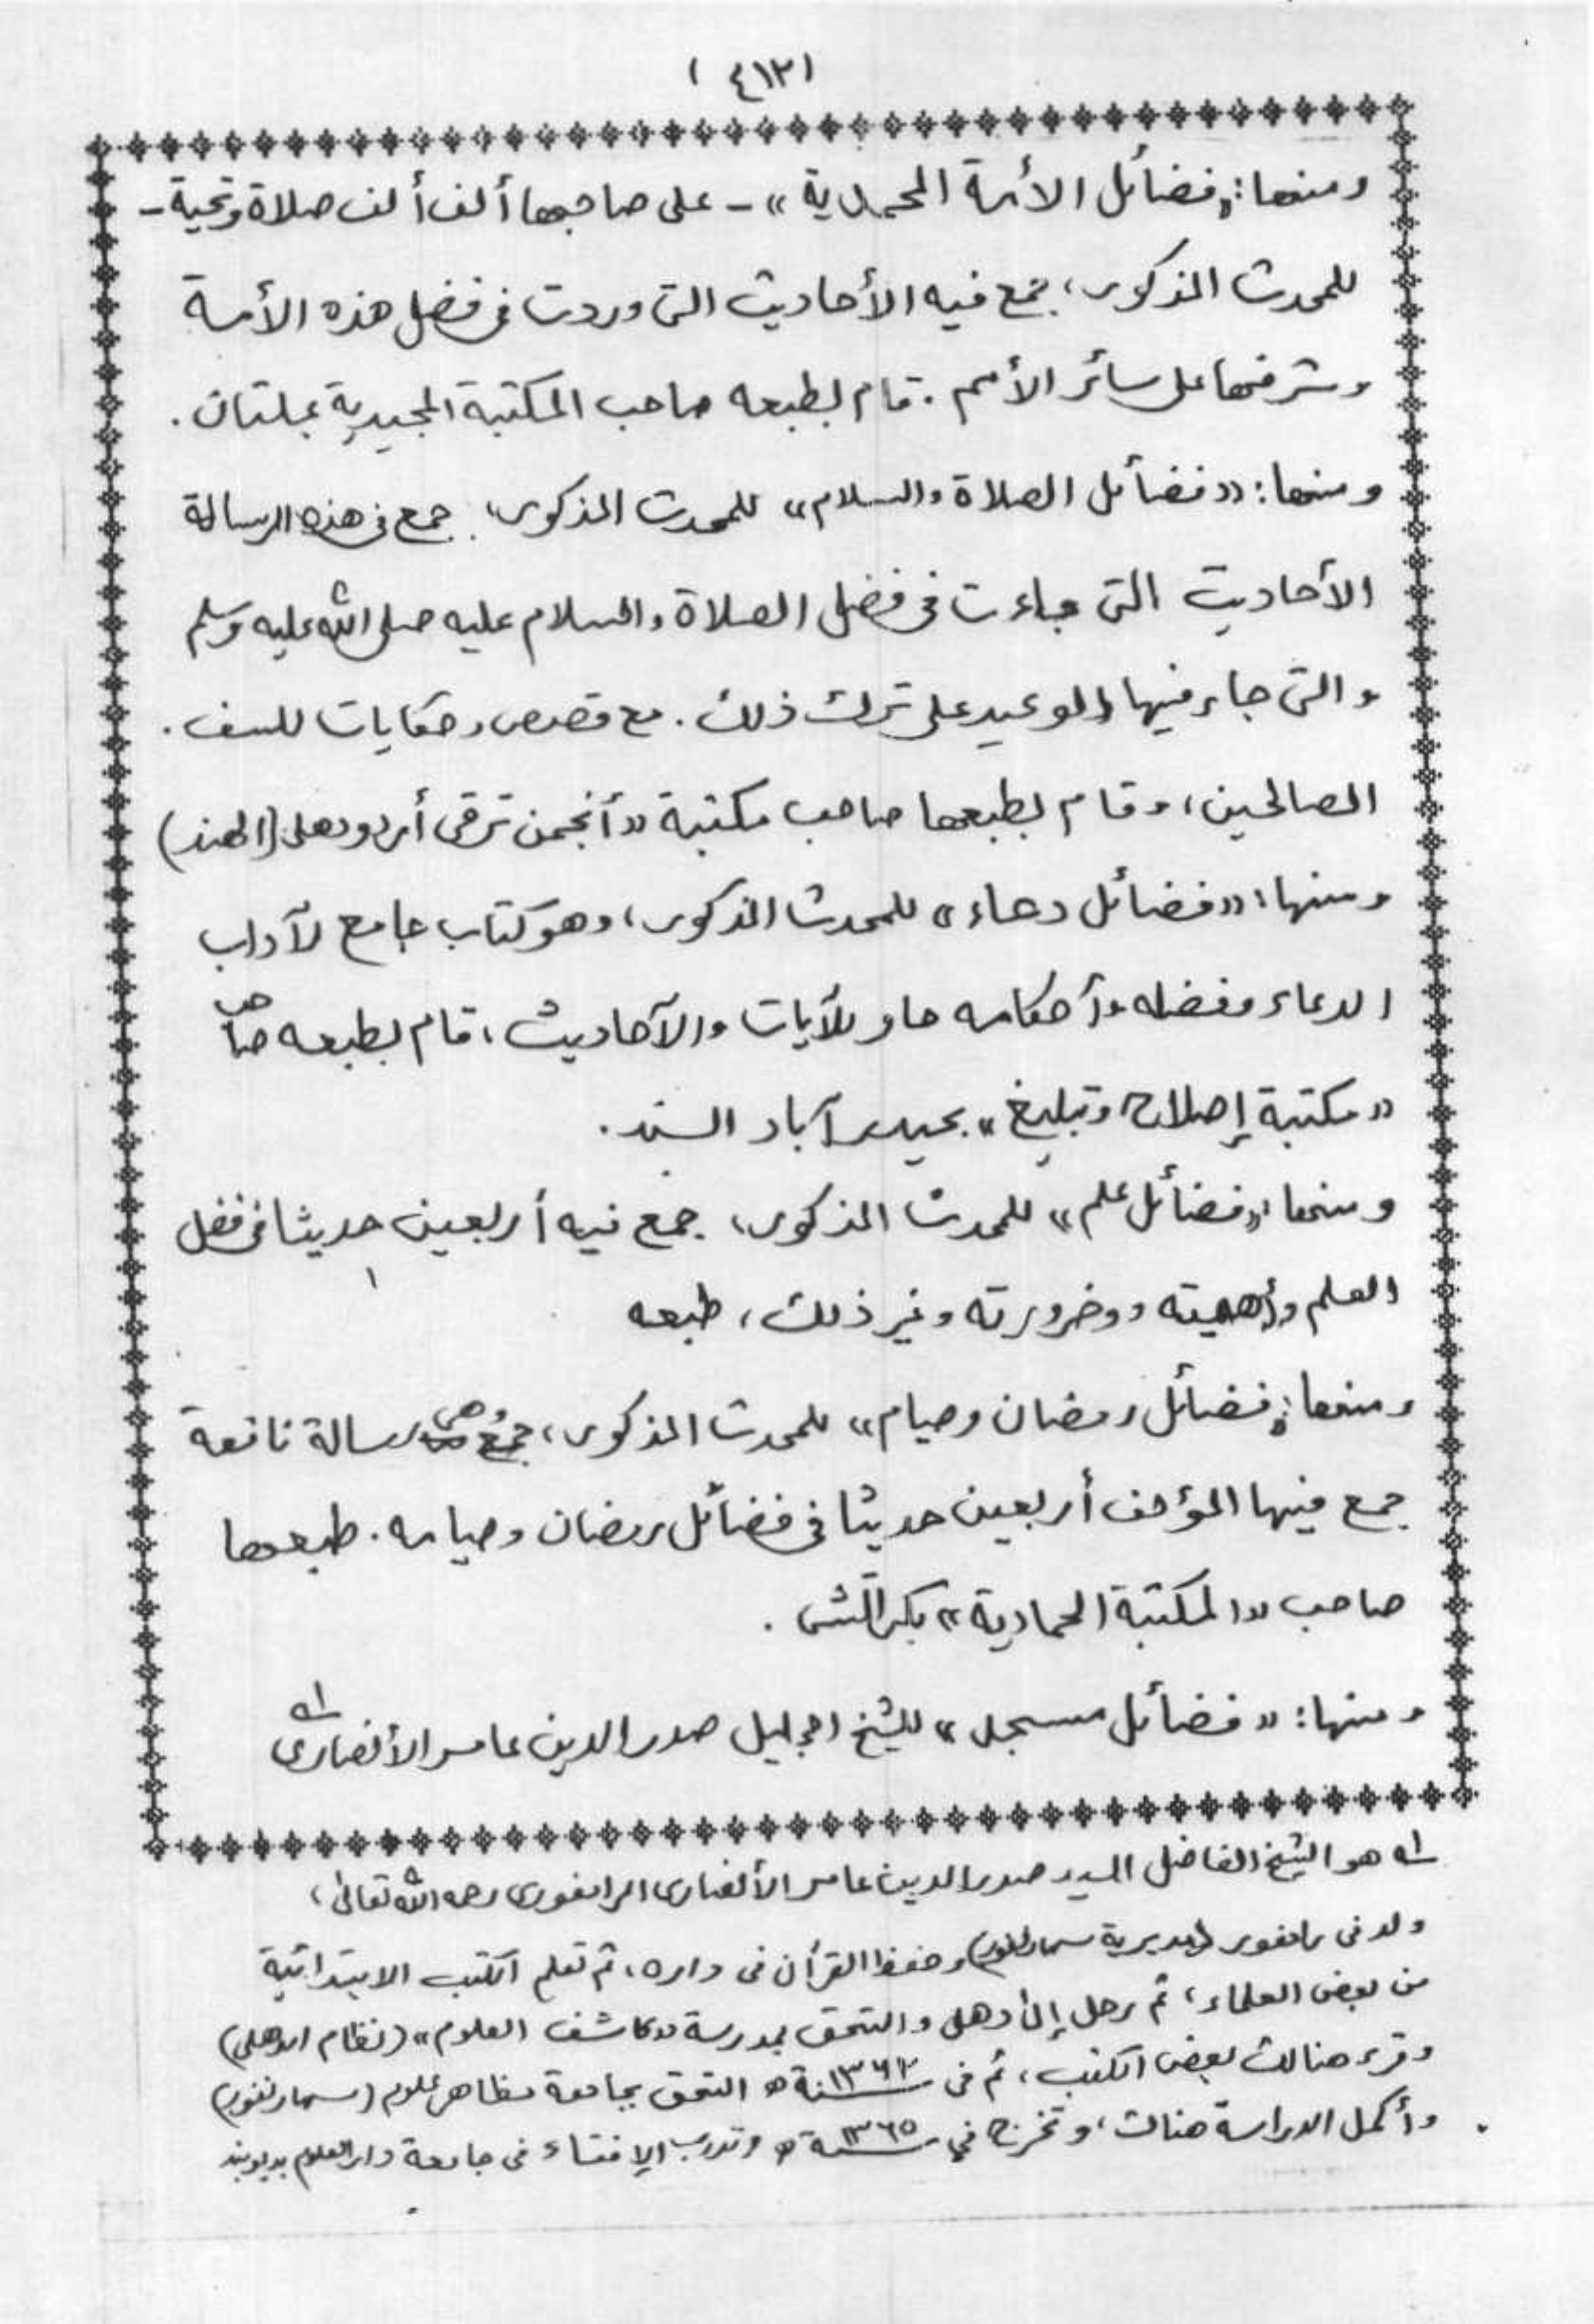 (٤١٢)
ومنها: «فضائل الأمة المحمدية» - على صاحبها ألف ألف صلاة وتحية -
للمحدث المذكور، جمع فيه الأحاديث التى وردت فى فضل هذه الأمة
وشرفها على سائر الأمم. قام بطبعه صاحب المكتبة المجيدية بملتان.
ومنها: «فضائل الصلاة والسلام» للمحدث المذكور، جمع فى هذه الرسالة
الأحاديث التى جاءت فى فضل الصلاة والسلام عليه صلى الله عليه وسلم
والتى جاء فيها الوعيد على ترك ذلك. مع قصص وحكايات للسف.
الصالحين، وقام بطبعها صاحب مكتبة «أنجمن ترقى أردو دهلى (الهند)
ومنها: «فضائل دعاء» للمحدث المذكور، وهو كتاب جامع لآداب
الدعاء وفضله وأحكامه حاو للآيات والآحاديث، قام بطبعه صاحب
«مكتبة إصلاح وتبليغ» بحيدرآباد السند.
ومنها: «فضائل علم» للمحدث المذكور، جمع فيه أربعين حديثا فى فضل
العلم وأهميته ووضرورته وغير ذلك، طبعه
ومنها: «فضائل رمضان وصيام» للمحدث المذكور، وهى رسالة نافعة
جمع فيها المؤلف أربعين حديثا فى فضائل رمضان وصيامه. طبعها
صاحب «المكتبة الحمادية» بكراتشى.
ومنها: «فضائل مسجد» للشيخ الجليل صدر الدين عامر الأنصارى ١ه
١ه هو الشيخ الفاضل السيد صدر الدين عامر الأنصارى الرامفورى رحمه الله تعالى،
ولد فى رامفور (بمديرية سهارنفور) وحفظ القرآن فى داره، ثم تعلم الكتب الابتدائية
من بعض العلماء، ثم رحل إلى دهلى والتحق بمدرسة «كاشف العلوم» (نظام الدهلى)
وقرء هنالك بعض الكتب، ثم فى سنة ١٣٦٢ه التحق بجامعة مظاهر علوم (سهارنفور)
وأكمل الدراسة هنالك، وتخرج فى سنة ١٣٦٥ه وتدرب الإفتاء فى جامعة دار العلوم بديوبند